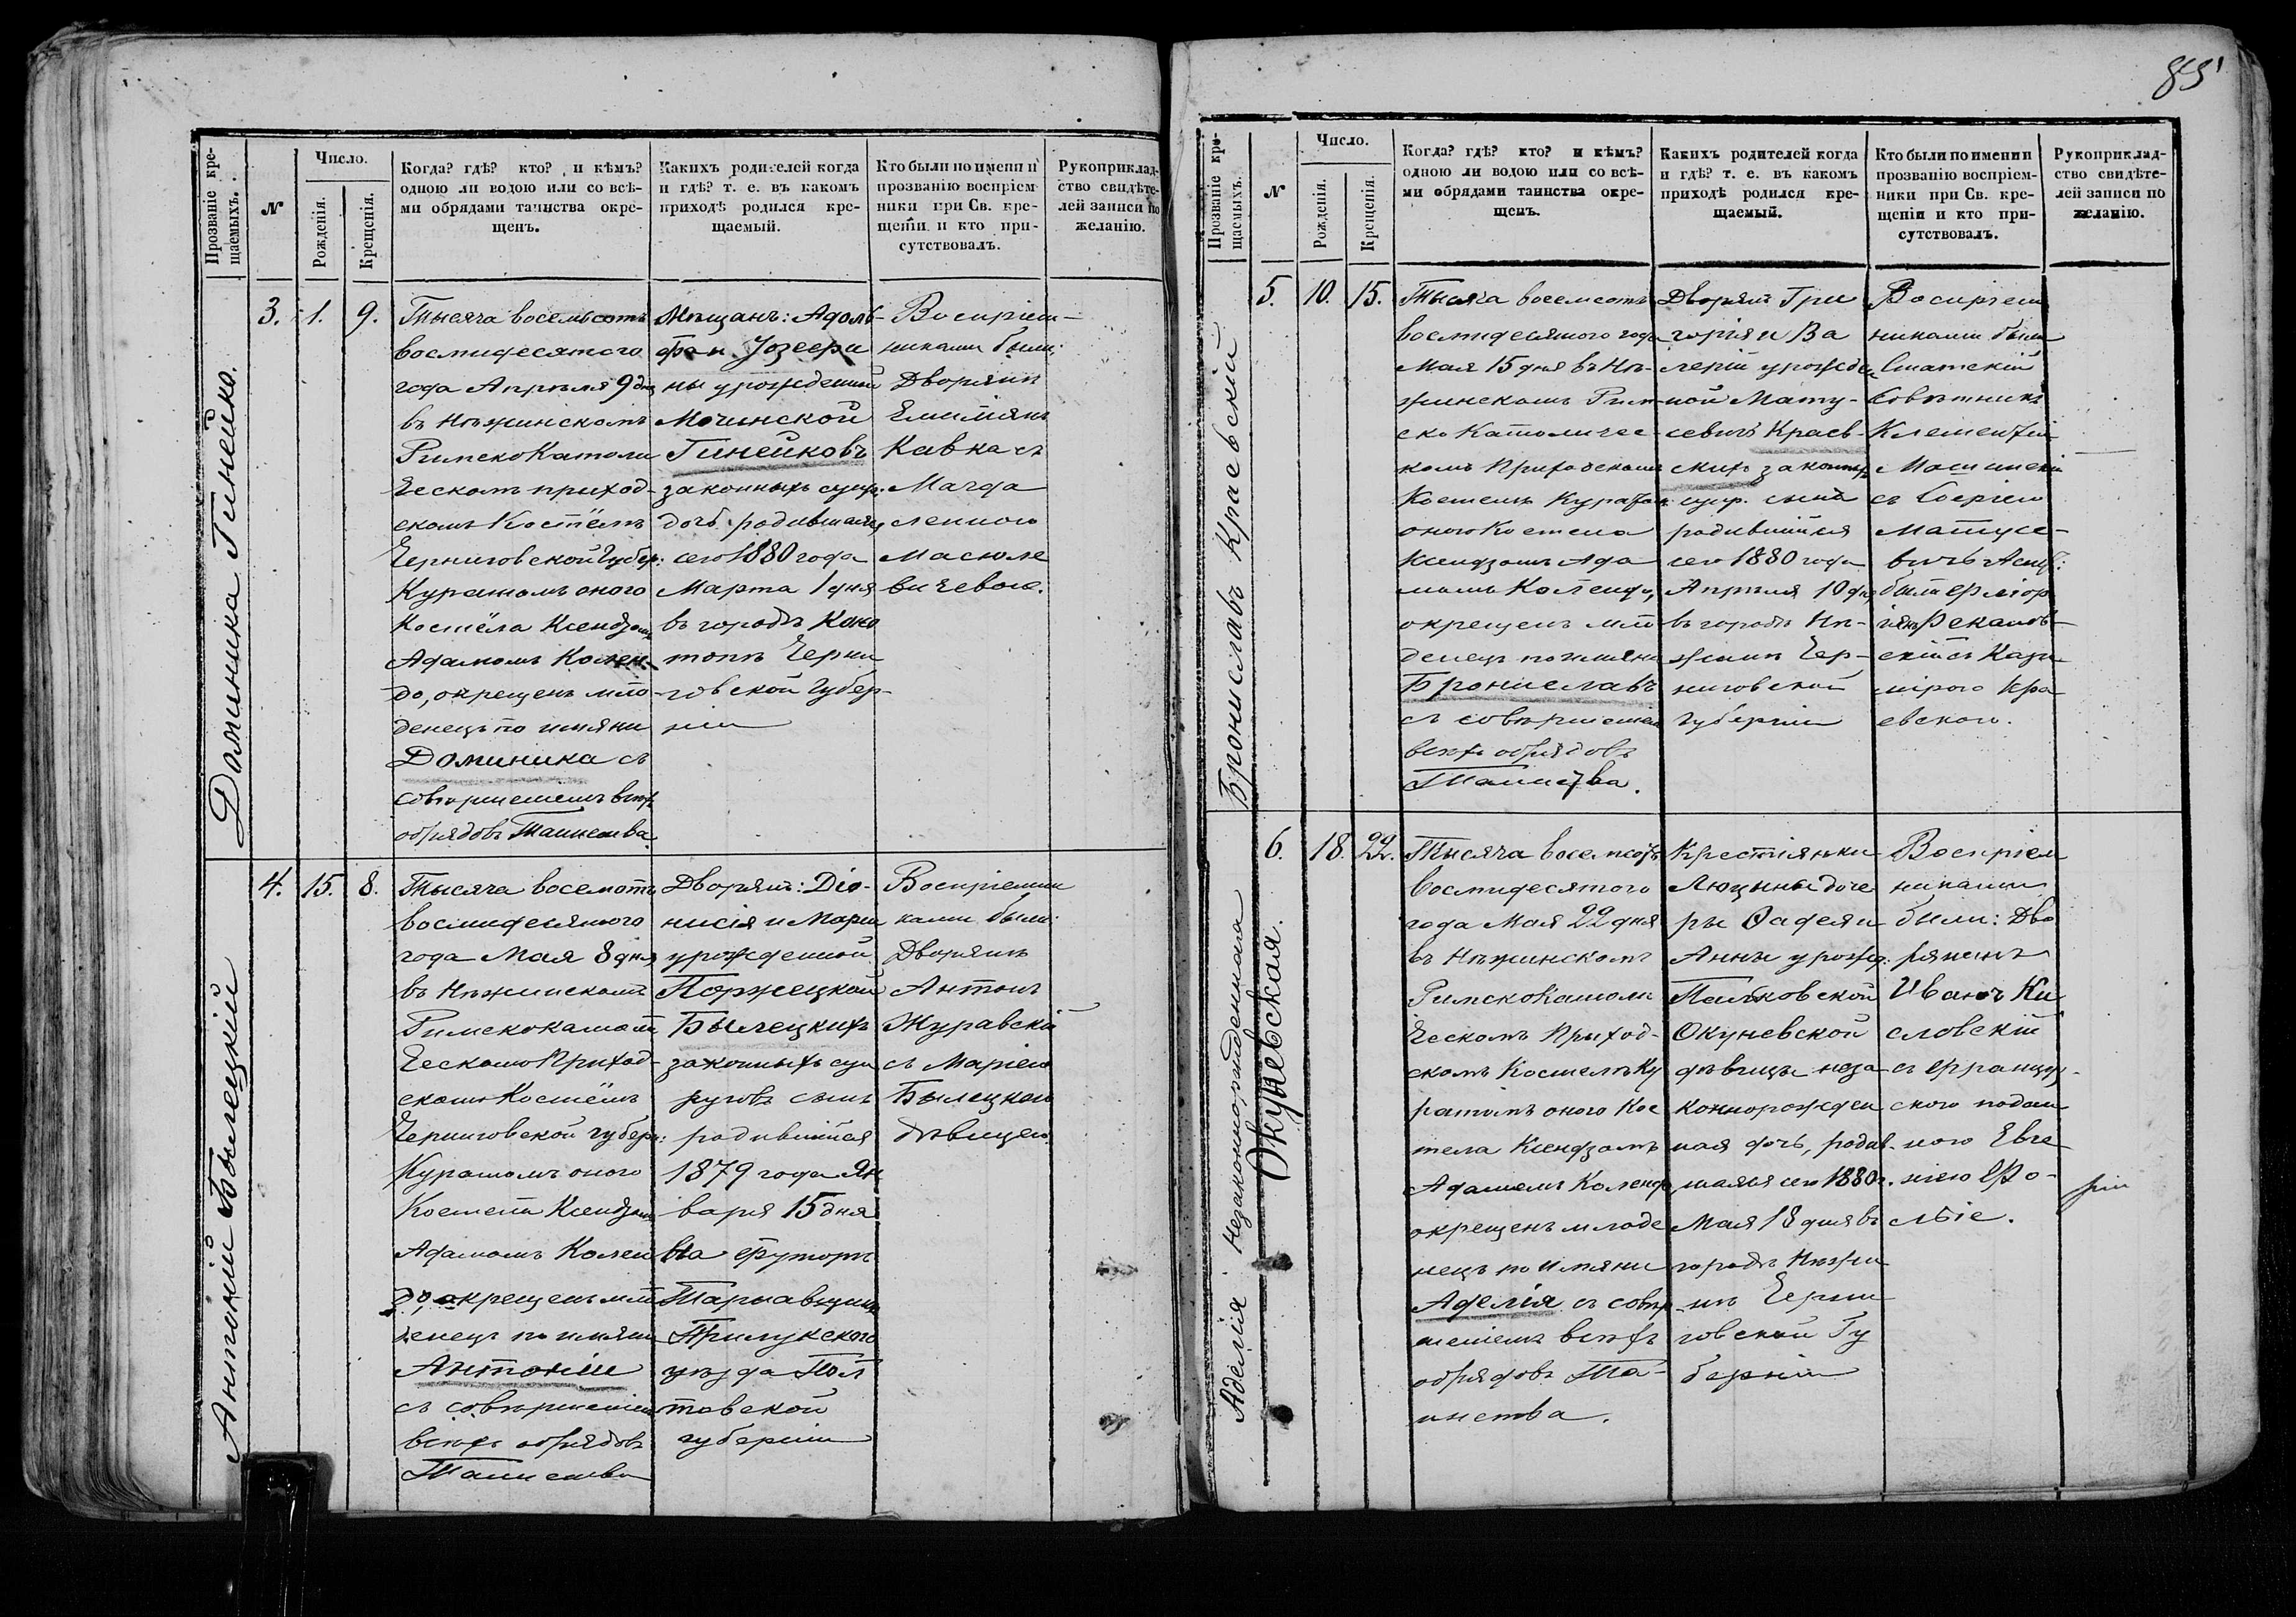 85
Прозваніе кре-
щаемыхъ.
N
Число.
Рожденія.
Крещенія.
Когда? гдѣ? кто? и кѣмъ?
одною ли водою или со всѣ-
ми обрядами таинства окре-
щенъ.
Какихъ родителей когда
и гдѣ? т. е. въ какомъ
приходѣ родился кре-
щаемый.
Кто были по имени и
прозванію воспріем-
ники при Св. кре-
щеніи и кто при-
сутствовалъ.
Рукоприклад-
ство свидѣте-
лей записи по
желанію.
Доминика Гинейко.
3. 1. 9.
Тысяча восемьсотъ
восмидесятого
года Апрѣля 9 дня
въ Нѣжинскомъ
Римско Католи
ческомъ приход-
скомъ Костёлѣ
Черниговской Губер:
Куратомъ оного
Костёла Ксендзомъ
Адамомъ Колен-
до, окрещенъ мла-
денецъ по имяни
Доминика съ
совершеніемъ всѣхъ
обрядовъ Таинства.
Мѣщанъ: Адоль-
фа и Юзефи
ны урожденной
Мочинской
Гинейковъ
законныхъ супр.
дочь родившаяся
сего 1880 года
Марта 1 дня
въ городѣ Коно
топѣ Черни
говской Губер-
ніи
Воспріем-
никами были:
Дворянин
Емиліянъ
Кавка съ
Магда
леною
Масюле
вичевою.
Антоній Былецкій
4. 15. 8.
Тысяча восемсотъ
восмидесятого
года Мая 8 дня
въ Нѣжинскомъ
Римскокатоли
ческомъ Приход-
скомъ Костёлѣ
Черниговской губер:
Куратомъ оного
Костела Ксендзомъ
Адамомъ Колен
до, окрещенъ мла
денецъ по имяни
Антоній
съ совершеніемъ
всѣхъ обрядовъ
Таинства
Дворянъ: Діо-
нисія и Маріи
урожденной
Поржецкой
Былецкихъ
законныхъ суп
руговъ сынъ
родившійся
1879 года Ян
варя 15 дня
на Футорѣ
Тарнавщинѣ
Прилукского
уѣзда Пол
тавской
губерніи
Воспріемни
ками были:
Дворянинъ
Антонъ
Журавскій
съ Маріею
Былецкою
дѣвицею.
Прозваніе кре-
щаемыхъ.
N
Число.
Рожденія.
Крещенія.
Когда? гдѣ? кто? и кѣмъ?
одною ли водою или со всѣ-
ми обрядами таинства окре-
щенъ.
Какихъ родителей когда
и гдѣ? т. е. въ какомъ
приходѣ родился кре-
щаемый.
Кто были по имени и
прозванію воспріем-
ники при Св. кре-
щеніи и кто при-
сутствовалъ.
Рукоприклад-
ство свидѣте-
лей записи по
желанію.
Брониславъ Краевскій
5. 10. 15.
Тысяча восемсотъ
восмидесятого года
Мая 15 дня въ Нѣ-
жинскомъ Рим-
ско Католичес-
комъ Приходскомъ
Костелѣ Куратом
оного Костела
Ксендзомъ Ада
момъ Колендо,
окрещенъ мла
денецъ по имяни
Брониславъ
съ совершеніем
всѣхъ обрядовъ
Таинства.
Дворянъ Гри
горія и Ва
леріи урожден
ной Мату-
севичъ Краев-
скихъ законных
супр. сынъ
родившійся
сего 1880 года
Апрѣля 10 дня
въ городѣ Нѣ-
жинѣ Чер-
ниговской
Губерніи
Воспріем
никами были
Статскій
Совѣтникъ
Клементій
съ Софіею
Матусе-
вичъ Асист:
были
съ Кази
мірою Кра
евскою.
Аделія Незаконнорожденная
Окуневская.
6. 18. 22.
Тысяча восемсотъ
восмидесятого
года Мая 22 дня
въ Нѣжинскомъ
Римскокатоли
ческомъ Приход-
скомъ Костелѣ Ку
ратомъ оного Кос
тела Ксендзомъ
Адамомъ Колендо
окрещенъ младе
нецъ по имяни
Аделія съ совер
шеніемъ всѣхъ
обрядовъ Та-
инства.
Крестіянки
Люцыны доче
ры Фадея и
Анны урожд:
Пальковской
Окуневской
дѣвицы неза
коннорожден
ная дочь, родив-
шаяся сего 1880 г.
Мая 18 дня въ
городѣ Нѣжи
нѣ Черни
говской Гу
берніи
Воспріем
никами
были: Дво
рянинъ
Иванъ Ки
словскій
съ Француз-
скою подан
ною Евге
ніею